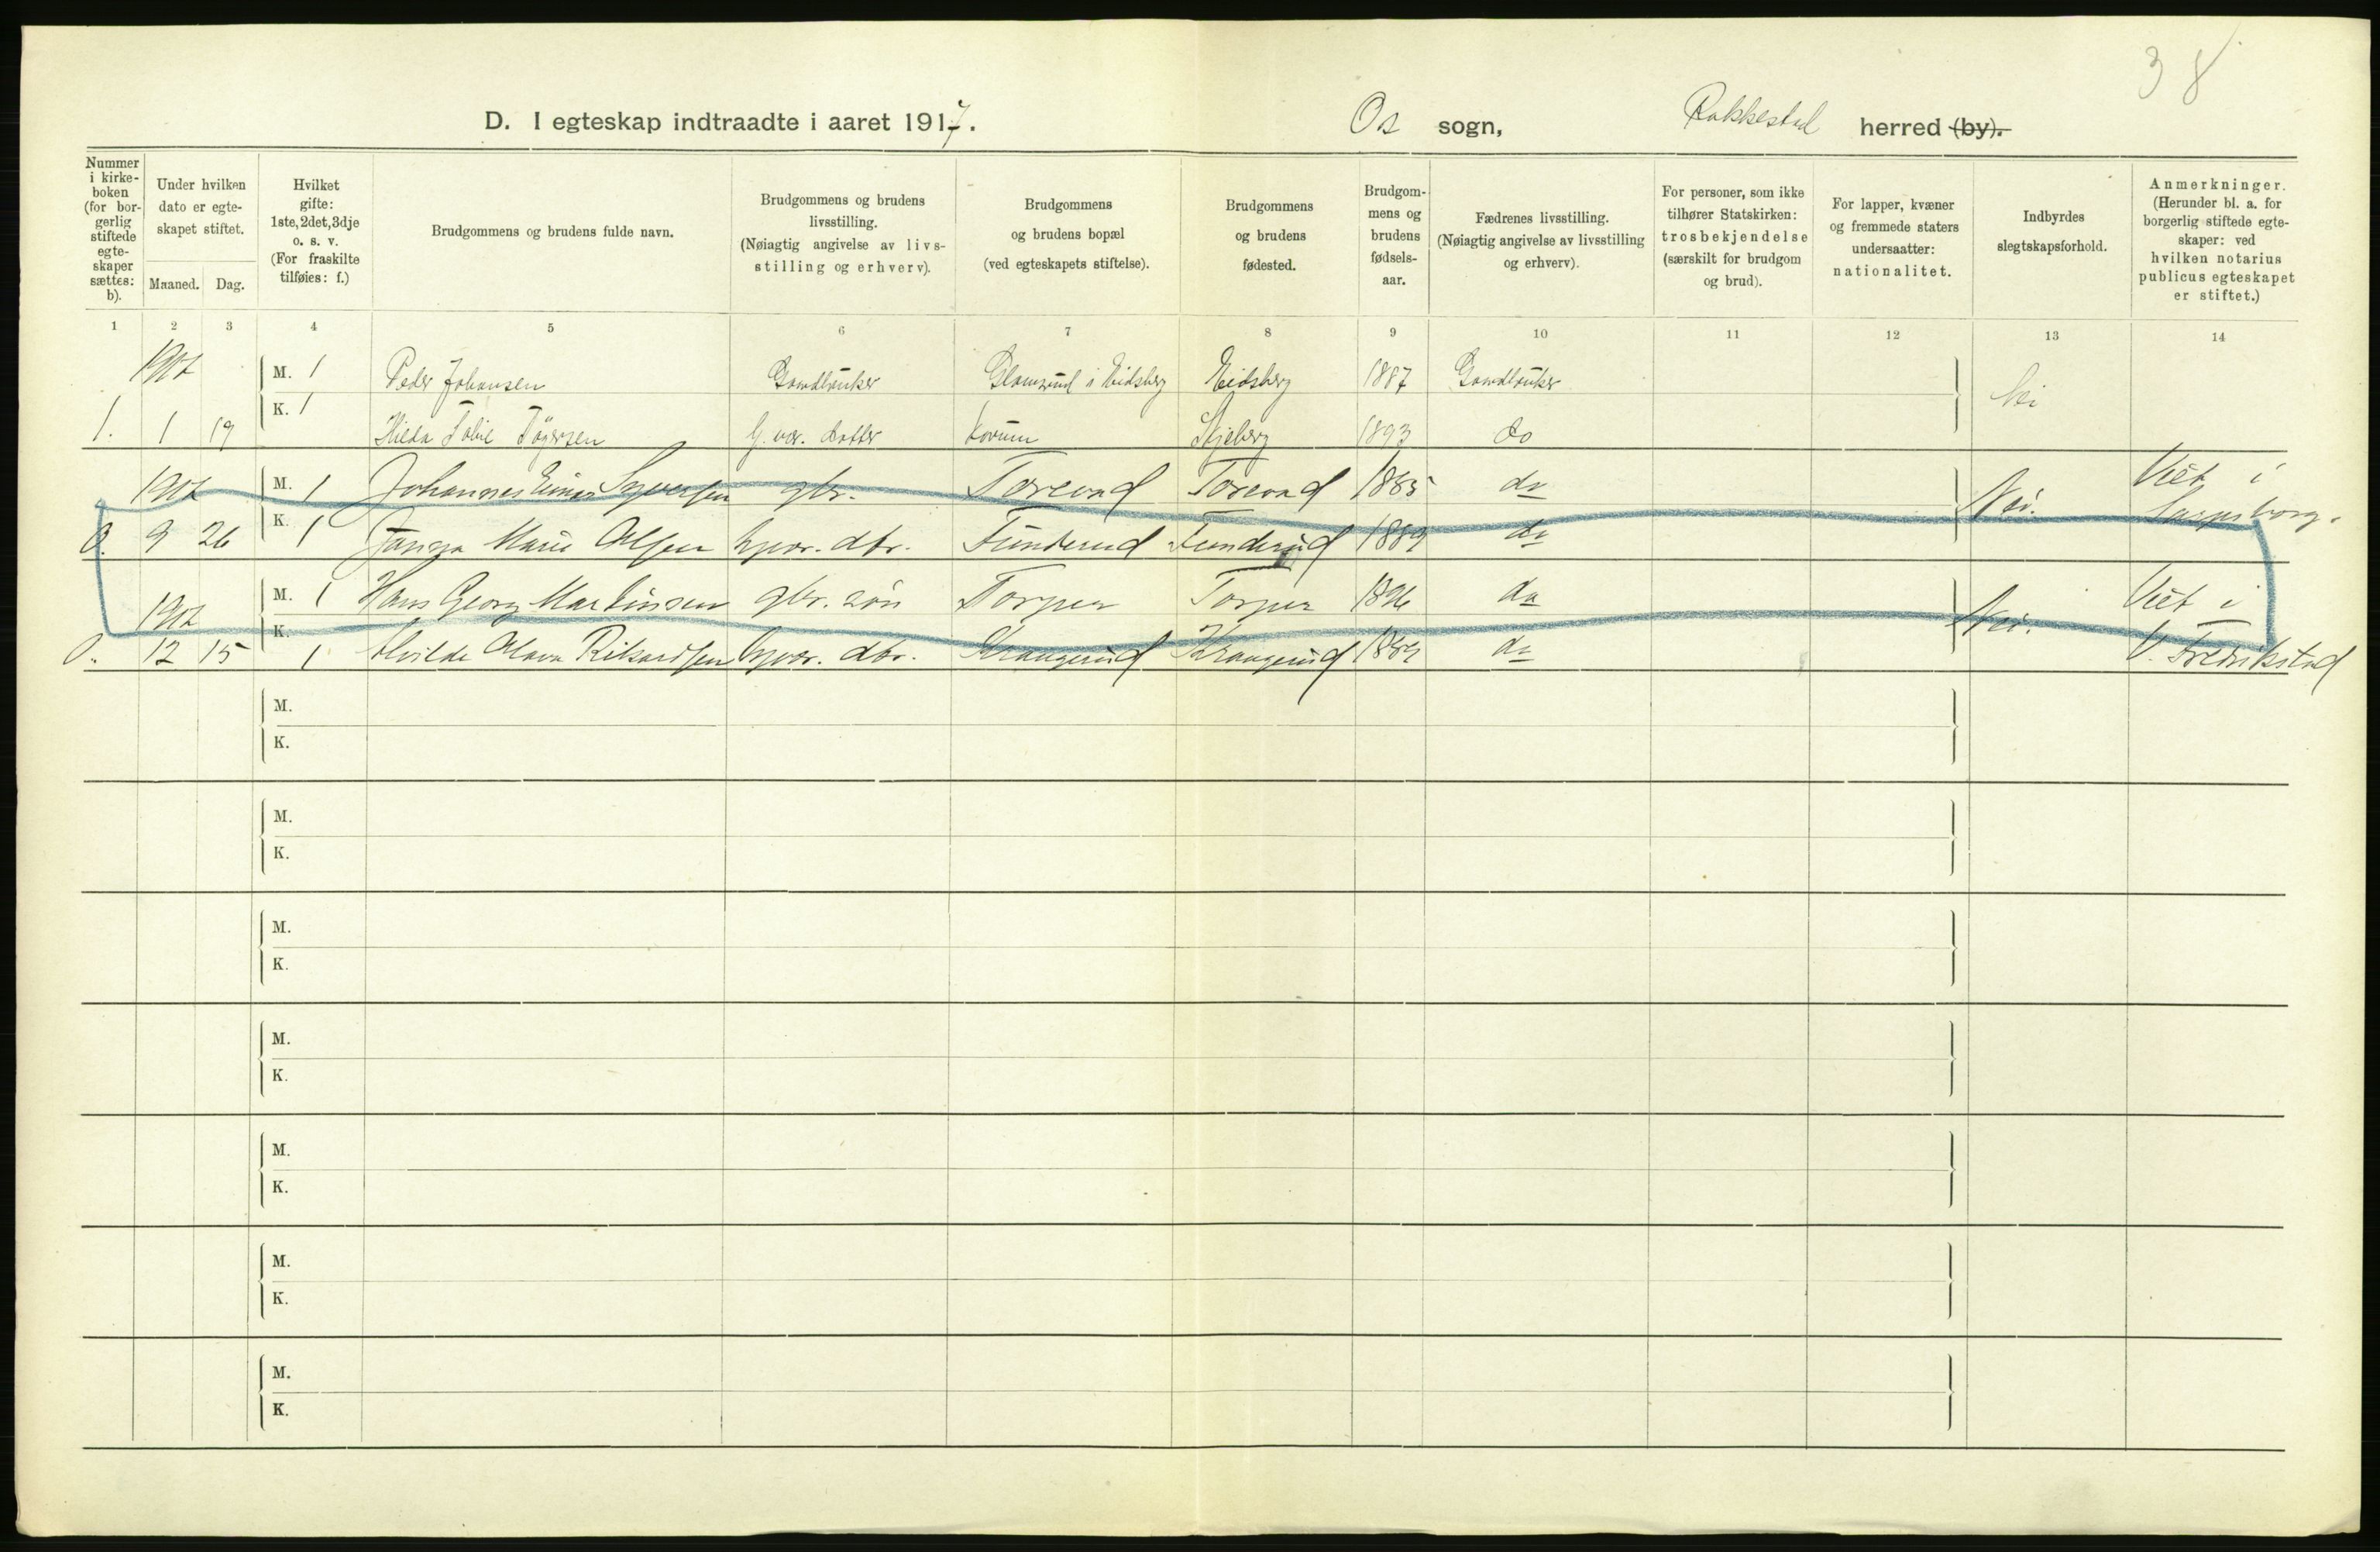 38
D. I egteskap indtraadte i aaret 1917.
Os sogn, Rakkestad herred (by).
Nummer i kirke-boken (for bor-gerlig stiftede egte-skaper sættes: b).
Under hvilken dato er egte-skapet stiftet.
Maaned. Dag.
Hvilket gifte: 1ste, 2det, 3dje o. s. v. (For fraskilte tilføies: f.)
Brudgommens og brudens fulde navn.
Brudgommens og brudens livsstilling. (Nøiagtig angivelse av livs-stilling og erhverv).
Brudgommens og brudens bopæl (ved egteskapets stiftelse).
Brudgommens og brudens fødested.
Brudgom-mens og brudens fødsels-aar.
Fædrenes livsstilling. (Nøiagtig angivelse av livsstilling og erhverv).
For personer, som ikke tilhører Statskirken: trosbekjendelse (særskilt for brudgom og brud).
For lapper, kvæner og fremmede staters undersaatter: nationalitet.
Indbyrdes slegtskapsforhold.
Anmerkninger. (Herunder bl. a. for borgerlig stiftede egte-skaper: ved hvilken notarius publicus egteskapet er stiftet.)
1 2 3 4 5 6 7 8 9 10 11 12 13 14
1917 M. 1 Peder Johansen Gaardbruker i Eidsberg Eidsberg 1887 Gaardbruker Nei
1. 1 19 K. 1 G. dotter Skjeberg 1893 do
1917 M. 1 Johannes Einar gbr. 1885 do Nei. Viet i Sarpsborg.
0. 9 26 K. 1 Marie Olsen dtr. Funderud Funderud 1889 do
1917 M. 1 Hans Georg Martinsen gbr. søn Torper Torper 1896 do Nei. Viet i
0. 12 15 K. 1 Olava Rikardsen dtr. Krangerud Krangerud 1889 do V. Fredrikstad
M.
K.
M.
K.
M.
K.
M.
K.
M.
K.
M.
K.
M.
K.